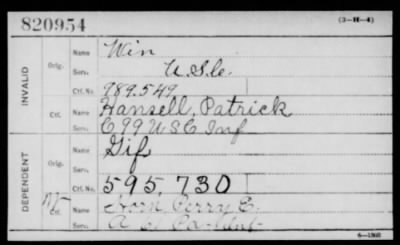 820954
(3-H-4)
INVALID
Orig.
Name Win
Serv. U.S.C.
Ctf. No. 989.549
Ctf.
Name Hansell, Patrick
Serv. C 99 U S C Inf
DEPENDENT
Orig.
Name Gif
Serv.
Ctf. No. 595,730
Ctf.
Name Horn Perry E.
Serv.
6-1861